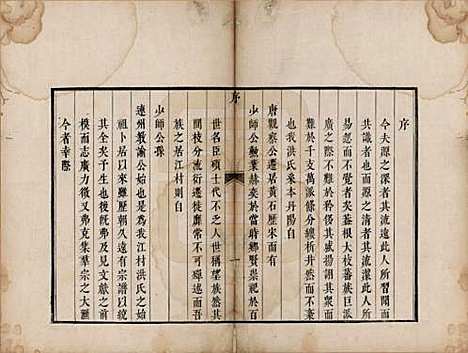 序
今夫源之深者其流遠此人所習聞而
共識者也而源之清者其流潔此人所
易忽而不察者夫釜根大枝蕃族巨派
廣之際不難於矜侈其盛揚詡其美而
難於千支萬派條分縷析井然而不
也我洪氏來本丹陽自
唐觀察公遷居黃石歷宋而有
少師公勳業赫奕於當時鄉賢崇祀於百
序
一
世名臣碩士代不乏人世稱望族然其
間枝分流衍遷徙靡常不可殫述而吾
族之居江村則自
少師公孫
連州教諭公始也為我江村洪氏之
祖卜居以來雖歷朝久遠有宗譜以統
其全矣予生也晚弗及見文獻之前
模而志廣力微又弗克集羣宗之大滙
今者幸際